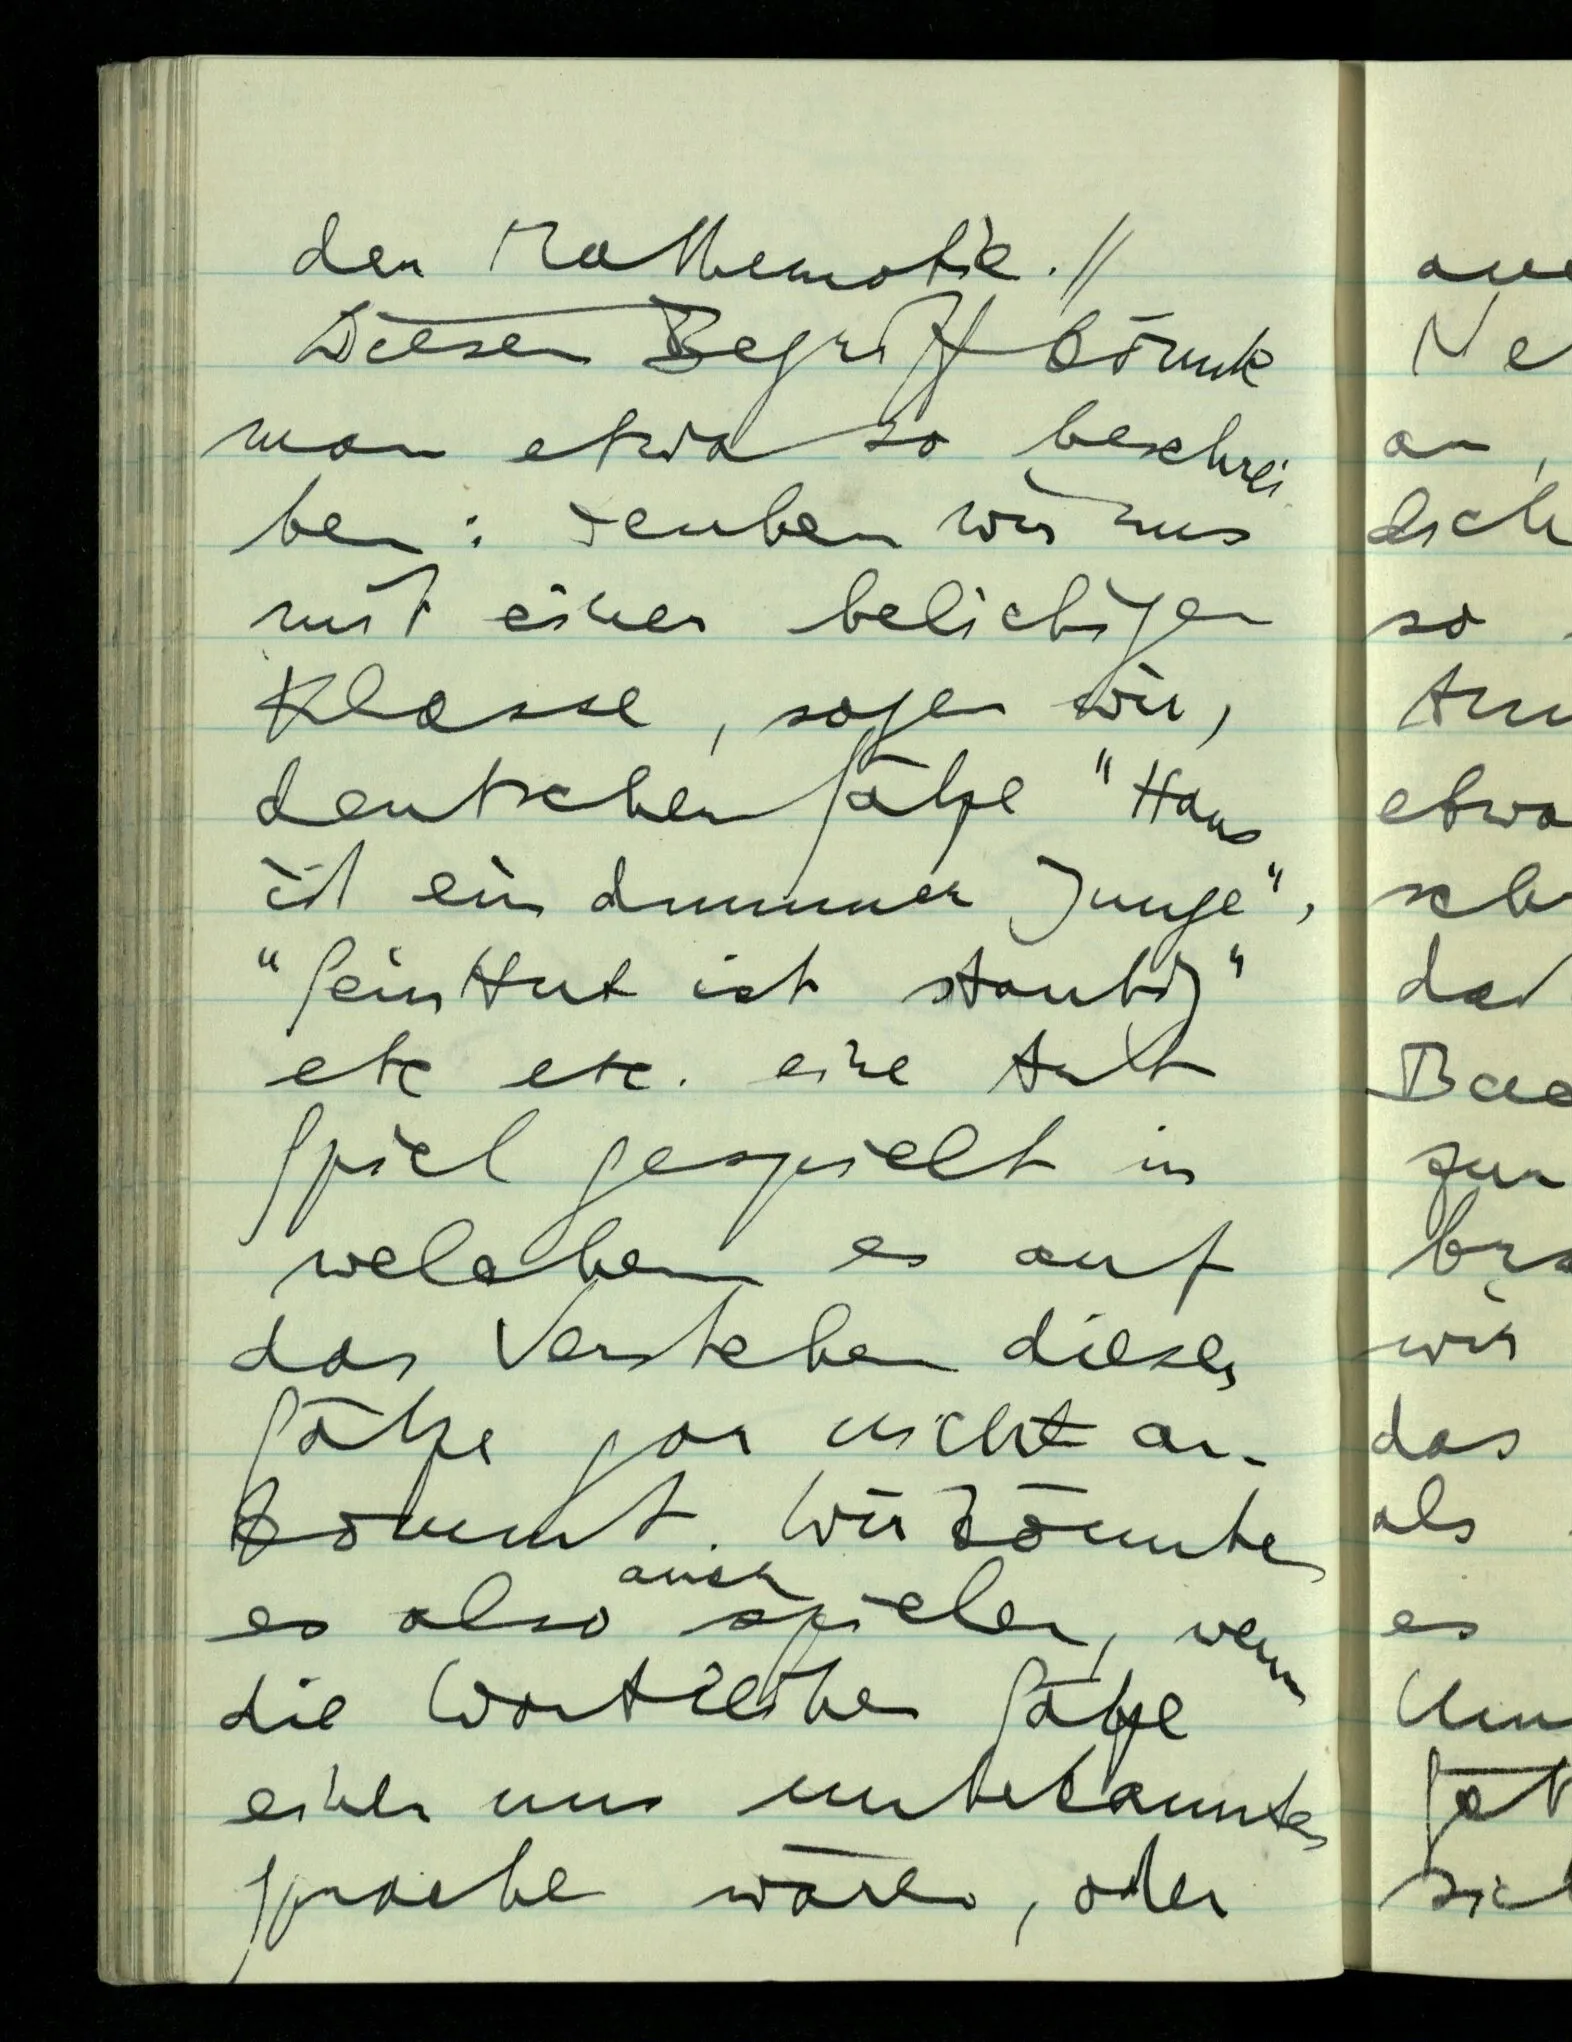 der Mathematik. //
Diesen Begriff könnte
man etwa so beschrei
ben: denken wir uns
mit einer beliebigen
Klasse, sagen wir,
deutscher Sätze "Hans
ist ein dummer Junge",
"Sein Hut ist staubig"
etc etc. eine Art
Spiel gespielt in
welchem es auf
das Verstehen dieser
Sätze gar nicht an-
kommt. Wir könnten
es also auch spielen, wenn
die Wortreihen Sätze
einer uns unbekannten
Sprache wären, oder
an
etwa
das
als
es